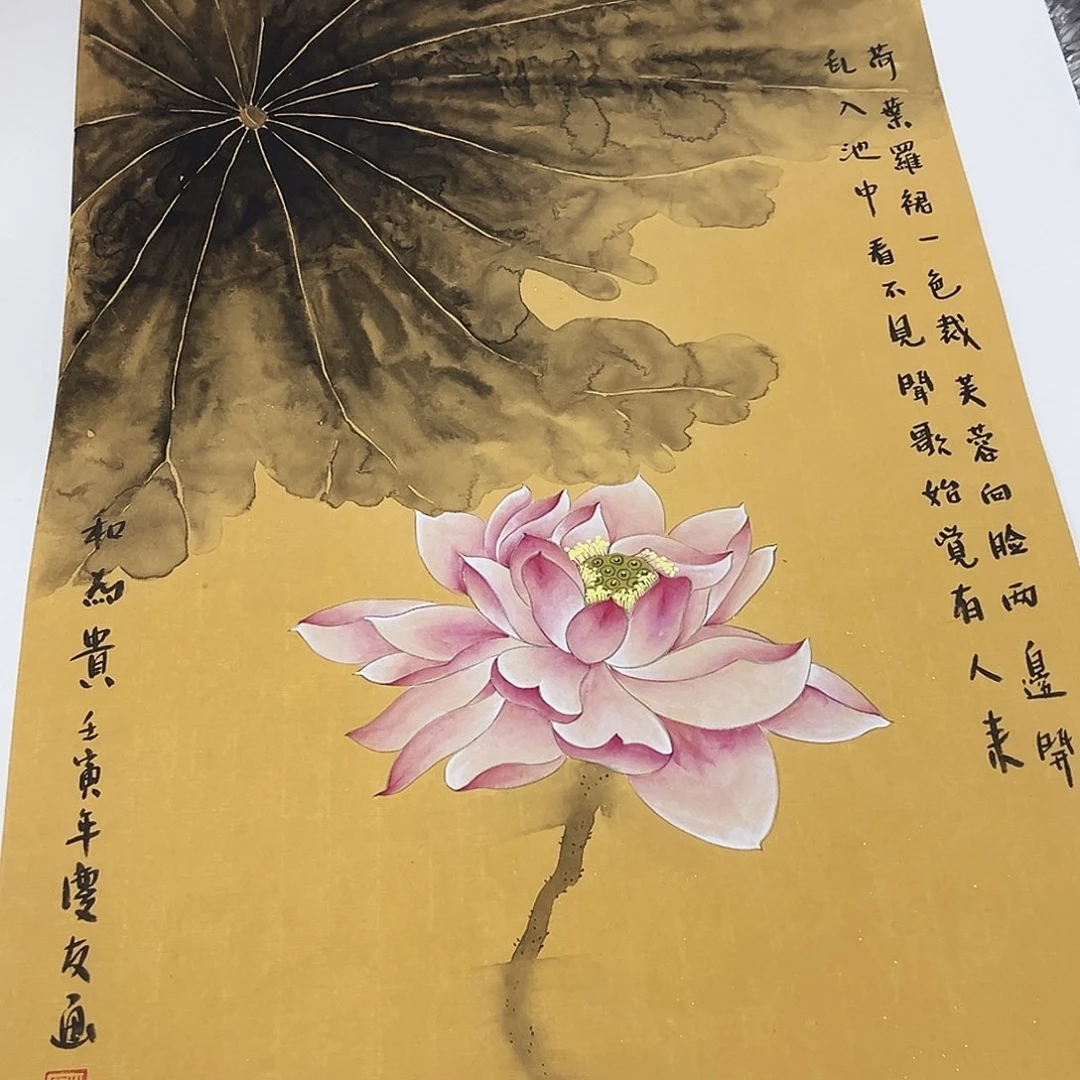 荷葉羅裙一色裁芙蓉向脸兩邊開
乱入池中看不見聞歌始覺有人来
和為貴
壬寅年慶友画